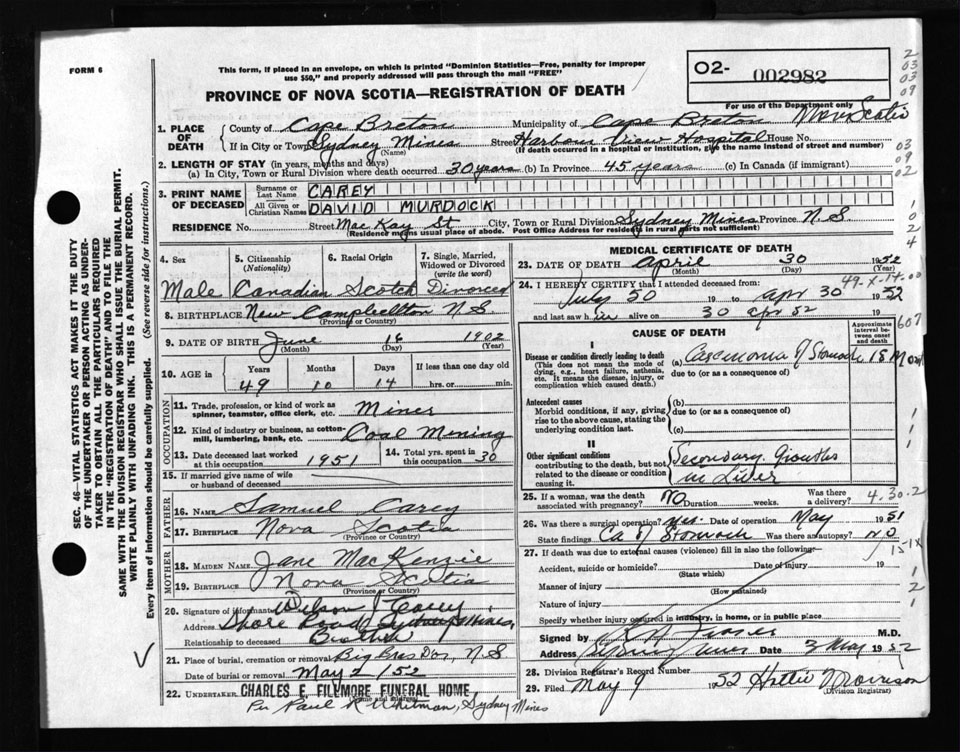 FORM 6
This form, if placed in an envelope, on which is printed "Dominion Statistics—Free, penalty for improper
use $50," and properly addressed will pass through the mail "FREE"
02- 002982
PROVINCE OF NOVA SCOTIA—REGISTRATION OF DEATH
For use of the Department only
2
03
03
09
03
09
02
1
0
2
4
1. PLACE OF DEATH
County of Cape Breton Municipality of Cape Breton Nova Scotia
If in City or Town Sydney Mines Street Harbour View Hospital House No.
(Name) (If death occurred in a hospital or institution, give the name instead of street and number)
2. LENGTH OF STAY (in years, months and days)
(a) In City, Town or Rural Division where death occurred 30 years (b) In Province 45 years (c) In Canada (if immigrant)
3. PRINT NAME OF DECEASED
Surname or Last Name CAREY
All Given or Christian Names DAVID MURDOCK
RESIDENCE No. Street MacKay St City, Town or Rural Division Sydney Mines Province N.S.
(Residence means usual place of abode. Post Office Address for residents in rural parts not sufficient)
4. Sex
5. Citizenship (Nationality)
6. Racial Origin
7. Single, Married, Widowed or Divorced (write the word)
Male Canadian Scotch Divorced
8. BIRTHPLACE New Campbellton N.S.
(Province or Country)
9. DATE OF BIRTH June 16 1902
(Month) (Day) (Year)
10. AGE in
Years Months Days If less than one day old
49 10 14 hrs. or min.
OCCUPATION
11. Trade, profession, or kind of work as spinner, teamster, office clerk, etc. Miner
12. Kind of industry or business, as cotton-mill, lumbering, bank, etc. Coal Mining
13. Date deceased last worked at this occupation 1951
14. Total yrs. spent in this occupation 30
15. If married give name of wife or husband of deceased
FATHER
16. Name Samuel Carey
17. BIRTHPLACE Nova Scotia
(Province or Country)
MOTHER
18. MAIDEN NAME Jane MacKenzie
19. BIRTHPLACE Nova Scotia
(Province or Country)
20. Signature of informant Wilson J Carey
Address Shore Road, Sydney Mines
Relationship to deceased Brother
21. Place of burial, cremation or removal Big Bras Dor, N.S
Date of burial or removal May 2 / 52
22. UNDERTAKER CHARLES E. FILLMORE FUNERAL HOME
Per Paul R Whitman, Sydney Mines
MEDICAL CERTIFICATE OF DEATH
23. DATE OF DEATH April 30 1952
(Month) (Day) (Year)
24. I HEREBY CERTIFY that I attended deceased from: 49-X-14.00
July 50 19 to Apr 30 1952
and last saw him alive on 30 apr 52 19
607
CAUSE OF DEATH
Approximate interval between onset and death
I
Disease or condition directly leading to death
(This does not mean the mode of dying, e.g., heart failure, asthenia, etc. It means the disease, injury, or complication which caused death.)
(a) Carcinoma of Stomach 18 Mon
due to (or as a consequence of)
Antecedent causes
Morbid conditions, if any, giving rise to the above cause, stating the underlying condition last.
(b)
due to (or as a consequence of)
(c)
II
Other significant conditions
contributing to the death, but not related to the disease or condition causing it.
Secondary Growths
in Liver
25. If a woman, was the death associated with pregnancy? No Duration weeks. Was there a delivery? 4.30.2
26. Was there a surgical operation? yes. Date of operation May 1951
State findings Ca of Stomach Was there an autopsy? NO
27. If death was due to external causes (violence) fill in also the following:
Accident, suicide or homicide? Date of injury 19
(State which)
Manner of injury
(How sustained)
Nature of injury
Specify whether injury occurred in industry, in home, or in public place
Signed by M.D.
Address Sydney Mines Date 3 May 1952
28. Division Registrar's Record Number
29. Filed May 9 1952 Hattie Morrison
(Division Registrar)
SEC. 46—VITAL STATISTICS ACT MAKES IT THE DUTY
OF THE UNDERTAKER OR PERSON ACTING AS UNDER-
TAKER TO OBTAIN ALL THE PARTICULARS REQUIRED
IN THE "REGISTRATION OF DEATH" AND TO FILE THE
SAME WITH THE DIVISION REGISTRAR WHO SHALL ISSUE THE BURIAL PERMIT.
WRITE PLAINLY WITH UNFADING INK. THIS IS A PERMANENT RECORD.
Every item of information should be carefully supplied. (See reverse side for instructions.)